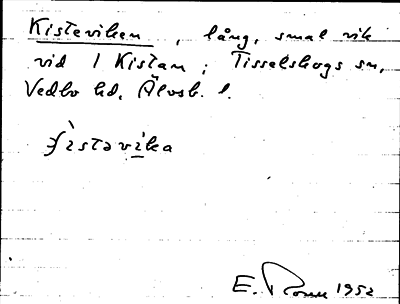 Kisteviken, lång, smal vik
vid 1 Kistan; Tisselskogs sn,
Vedbo hd, Älvsb. l.
E. 1952